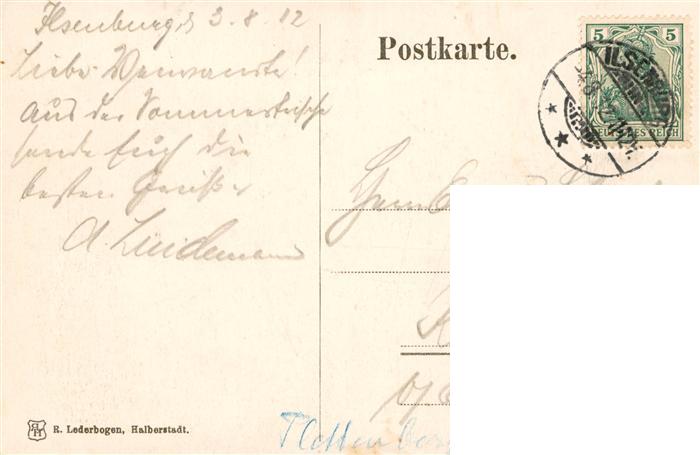 Ilsenburg, d 3.8.12
Liebe Verwandte!
Aus der Sommerfrische
sende Euch die
besten Grüße
A. Lindemann
Postkarte.
5 5
DEUTSCHES REICH
ILSENBURG
Herrn
R. Lederbogen, Halberstadt.